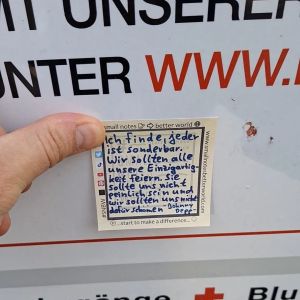 MIT UNSEREN
UNTER WWW.
small notes better world
Ich finde, jeder
ist sonderbar.
Wir sollten alle
unsere Einzigartig-
keit feiern. Sie
sollte uns nicht
peinlich sein und
wir sollten uns nicht
dafür schämen - Johnny
Depp -
...start to make a difference...
Blu